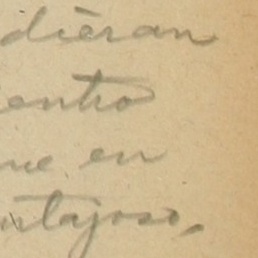 diéran
entro
ue en
ntajoso,